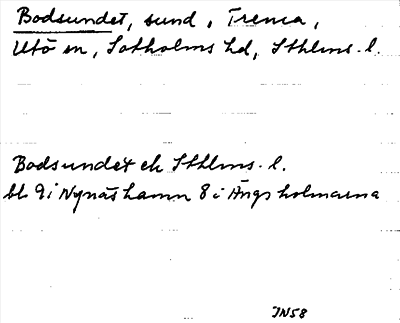 Bodsundet, sund, Trema,
Utö sn, Sotholms hd, Sthlms. l.
Bodsundet ek Sthlms. l.
bl. 9 i Nynäshamn 8 i Ängsholmarna
JN58